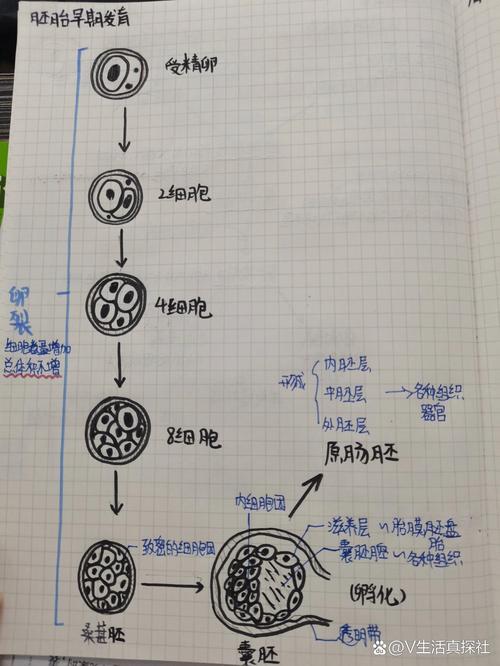 胚胎早期发育
受精卵
2细胞
4细胞
8细胞
卵裂
细胞数量增加
总体积不增
致密的细胞团
桑葚胚
内细胞团
囊胚
形成
内胚层
中胚层
外胚层
各种组织
器官
原肠胚
滋养层 ~ 胎膜胚盘
囊胚胚 ~ 各种组织
胎
(孵化)
透明带
@V生活真探社